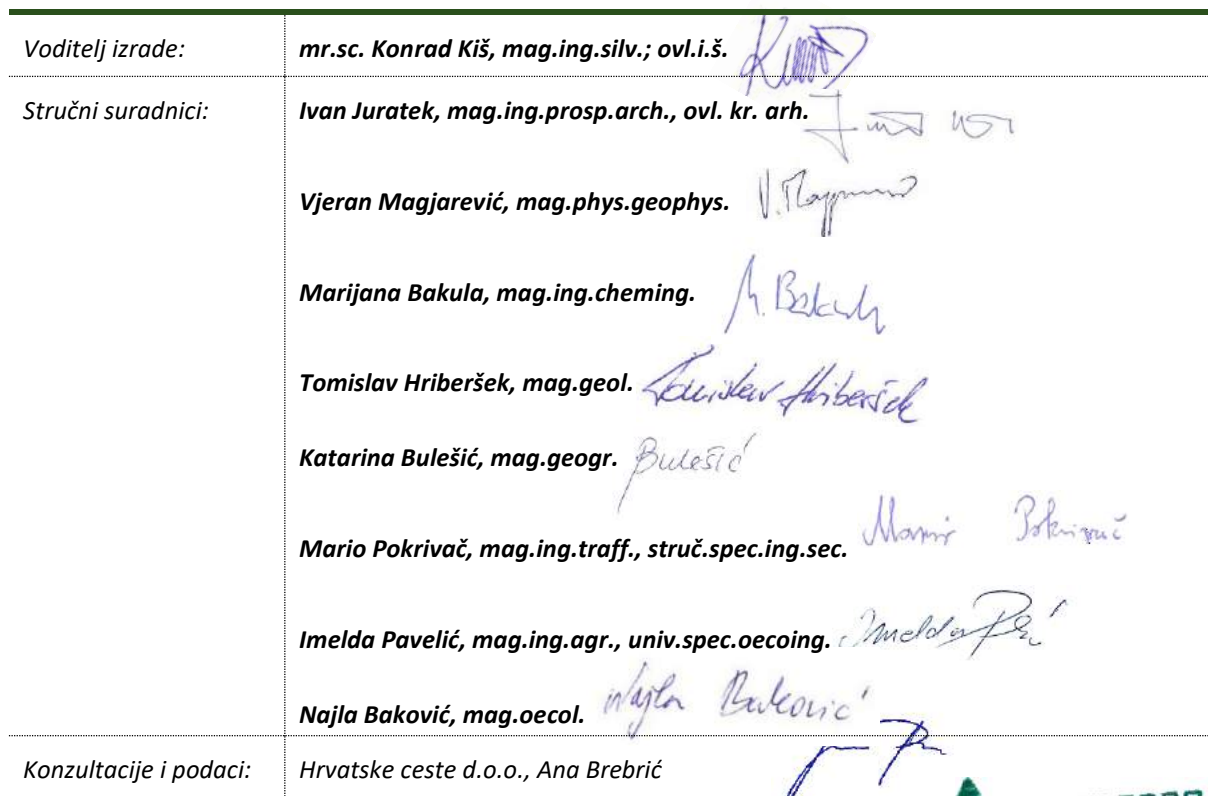 Voditelj izrade: mr.sc. Konrad Kiš, mag.ing.silv.; ovl.i.š.
Stručni suradnici: Ivan Juratek, mag.ing.prosp.arch., ovl. kr. arh.
Vjeran Magjarević, mag.phys.geophys.
Marijana Bakula, mag.ing.cheming. M. Bakula
Tomislav Hriberšek, mag.geol. Tomislav Hriberšek
Katarina Bulešić, mag.geogr. Bulešić
Mario Pokrivač, mag.ing.traff., struč.spec.ing.sec. Mario Pokrivač
Imelda Pavelić, mag.ing.agr., univ.spec.oecoing. Imelda
Najla Baković, mag.oecol. Najla Baković
Konzultacije i podaci: Hrvatske ceste d.o.o., Ana Brebrić